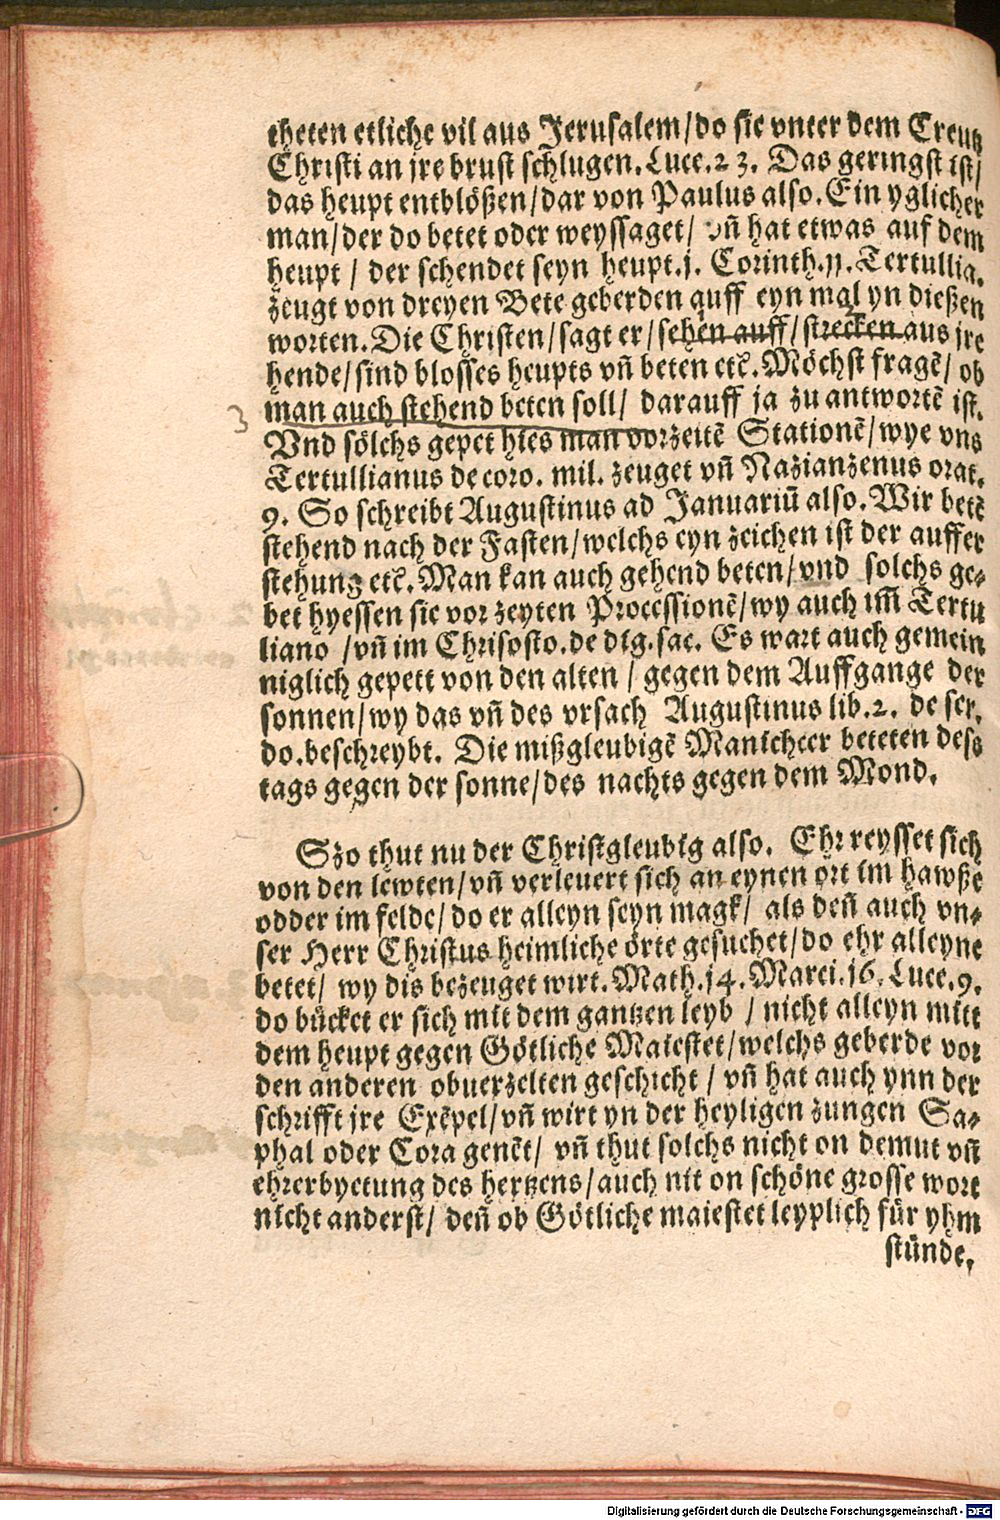 theten etliche vil aus Jerusalem/do sie vnter dem Creutz
Christi an jre brust schlugen. Luce. 23. Das geringst ist/
das heupt entblößen/dar von Paulus also. Ein yglicher
man/der do betet oder weyssaget/ vñ hat etwas auf dem
heupt / der schendet seyn heupt. j. Corinth. 11. Tertullia.
zeugt von dreyen Bete geberden auff eyn mal yn dießen
worten. Die Christen/sagt er/sehen auff/strecken aus jre
hende/sind blosses heupts vñ beten etc̃. Möchst fragē/ ob
man auch stehend beten soll/ darauff ja zu antwortē ist.
Vnd sölchs gepet hies man vorzeitē Stationē/wye vns
Tertullianus de coro. mil. zeuget vñ Nazianzenus orat.
9. So schreibt Augustinus ad Januariū also. Wir betē
stehend nach der Fasten/welchs eyn zeichen ist der auffer
stehung etc̃. Man kan auch gehend beten/vnd solchs ge-
bet hyessen sie vor zeyten Processionē/wy auch im̃ Tertu
liano /vñ im Chrisosto. de dig. sac. Es wart auch gemein
niglich gepett von den alten / gegen dem Auffgange der
sonnen/wy das vñ des vrsach Augustinus lib. 2. de ser.
do. beschreybt. Die mißgleubigē Manicheer beteten dess
tags gegen der sonne/des nachts gegen dem Mond.
Szo thut nu der Christgleubig also. Ehr reysset sich
von den lewten/vñ verleuert sich an eynen ort im hawße
odder im felde/do er alleyn seyn magk/ als deñ auch vn-
ser Herr Christus heimliche örte gesuchet/do ehr alleyne
betet/ wy dis bezeuget wirt. Math. 14. Marci. 16. Luce. 9.
do bücket er sich mit dem gantzen leyb / nicht alleyn mitt
dem heupt gegen Götliche Maiestet/welchs geberde vor
den anderen obuerzelten geschicht / vñ hat auch ynn der
schrifft jre Exēpel/vñ wirt yn der heyligen zungen Sa-
phal oder Cora genēt/ vñ thut solchs nicht on demut vñ
ehrerbyetung des hertzens/auch nit on schöne grosse wort
nicht anderst/ deñ ob Götliche maiestet leyplich für yhm
stünde,
Digitalisierung gefördert durch die Deutsche Forschungsgemeinschaft - DFG